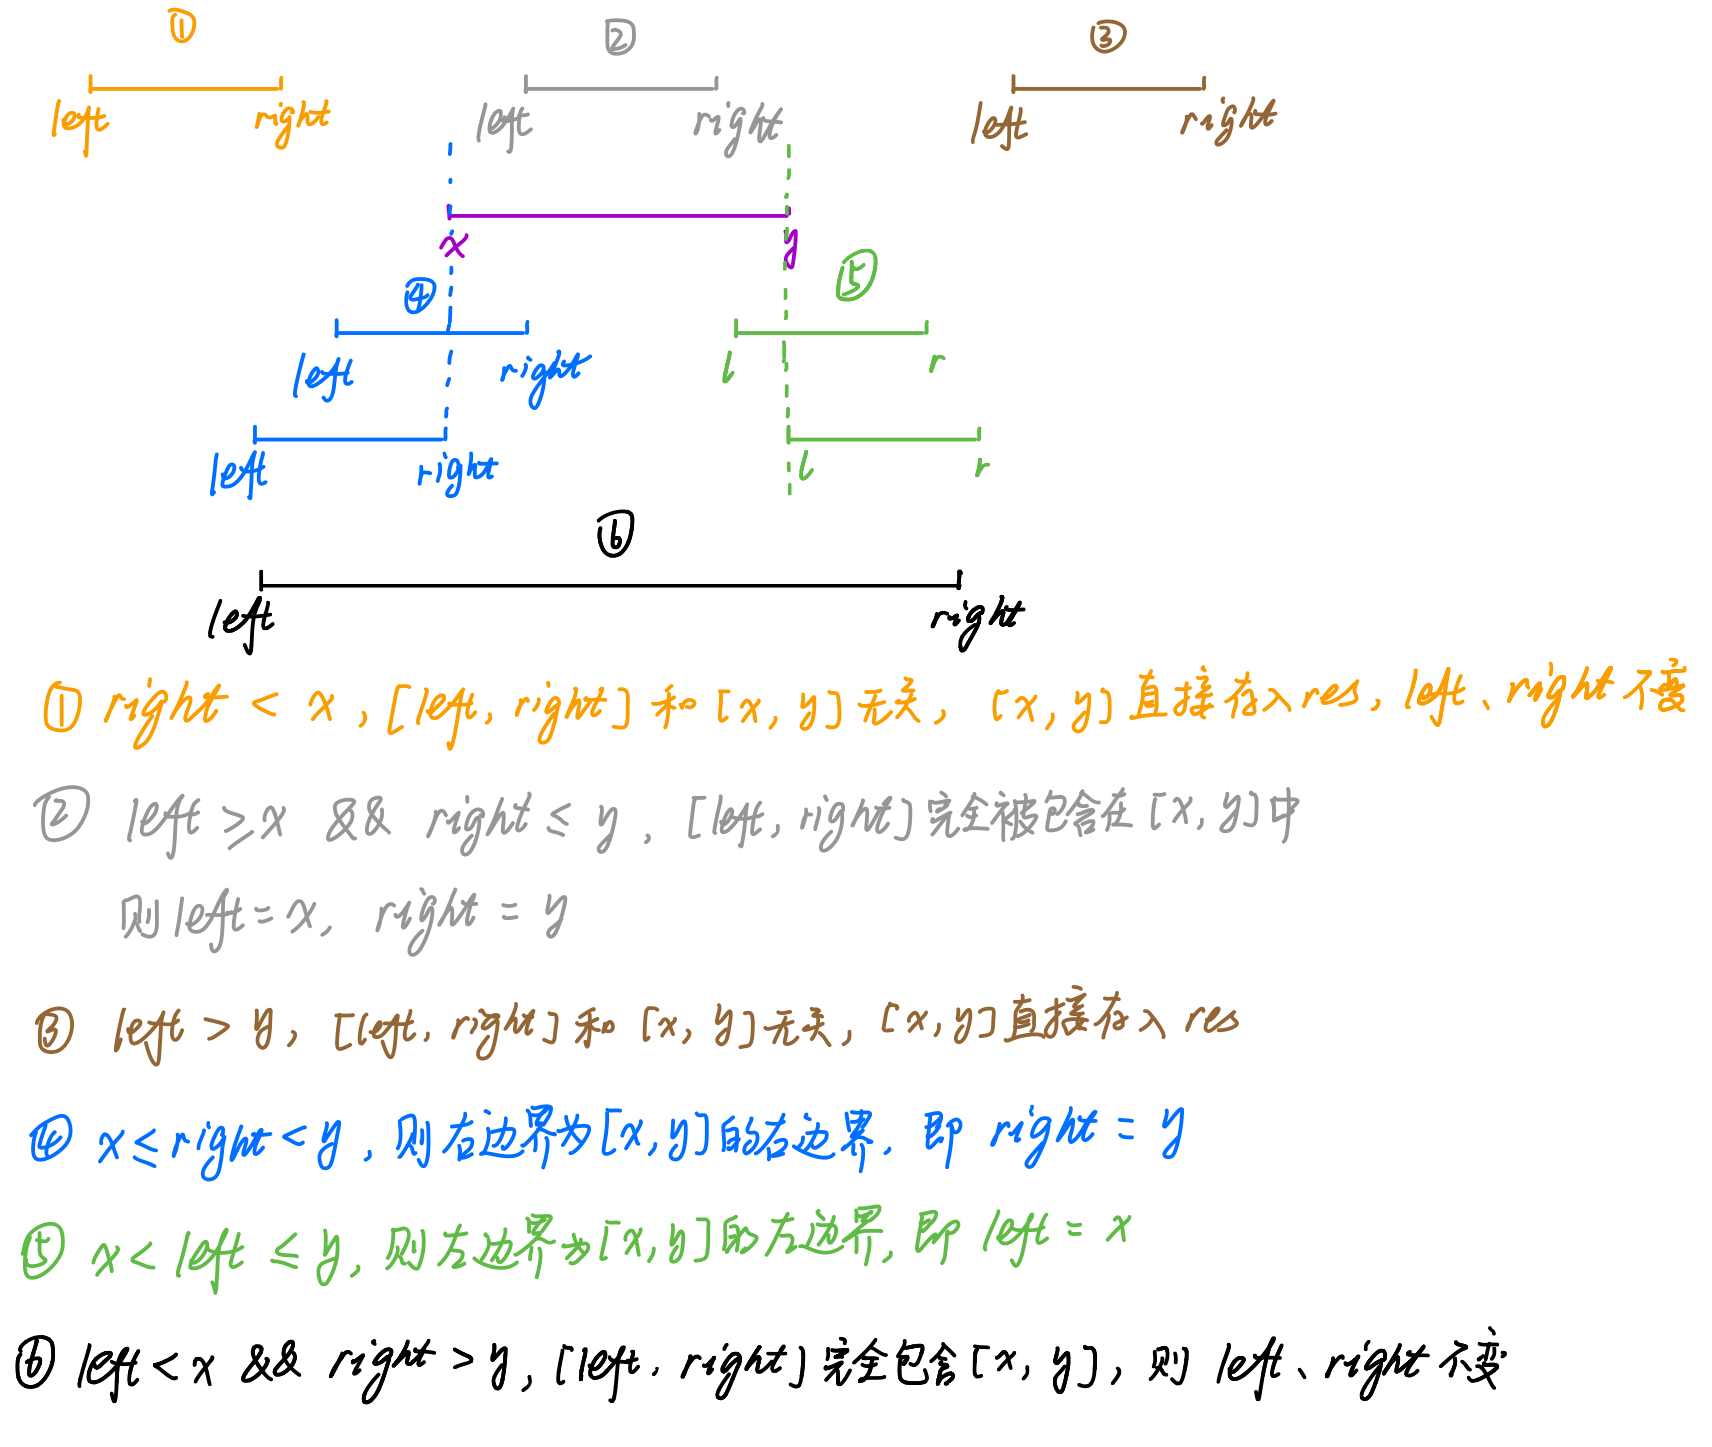 ① ② ③
left right left right left right
x y
④ ⑤
left right l r
left right l r
⑥
left right
① right < x , [left, right] 和 [x, y] 无关, [x, y] 直接存入 res, left、right 不变
② left ≥ x && right ≤ y , [left, right] 完全被包含在 [x, y] 中
则 left = x, right = y
③ left > y, [left, right] 和 [x, y] 无关, [x, y] 直接存入 res
④ x ≤ right < y , 则右边界为 [x, y] 的右边界, 即 right = y
⑤ x < left ≤ y, 则左边界为 [x, y] 的左边界, 即 left = x
⑥ left < x && right > y, [left, right] 完全包含 [x, y], 则 left、right 不变